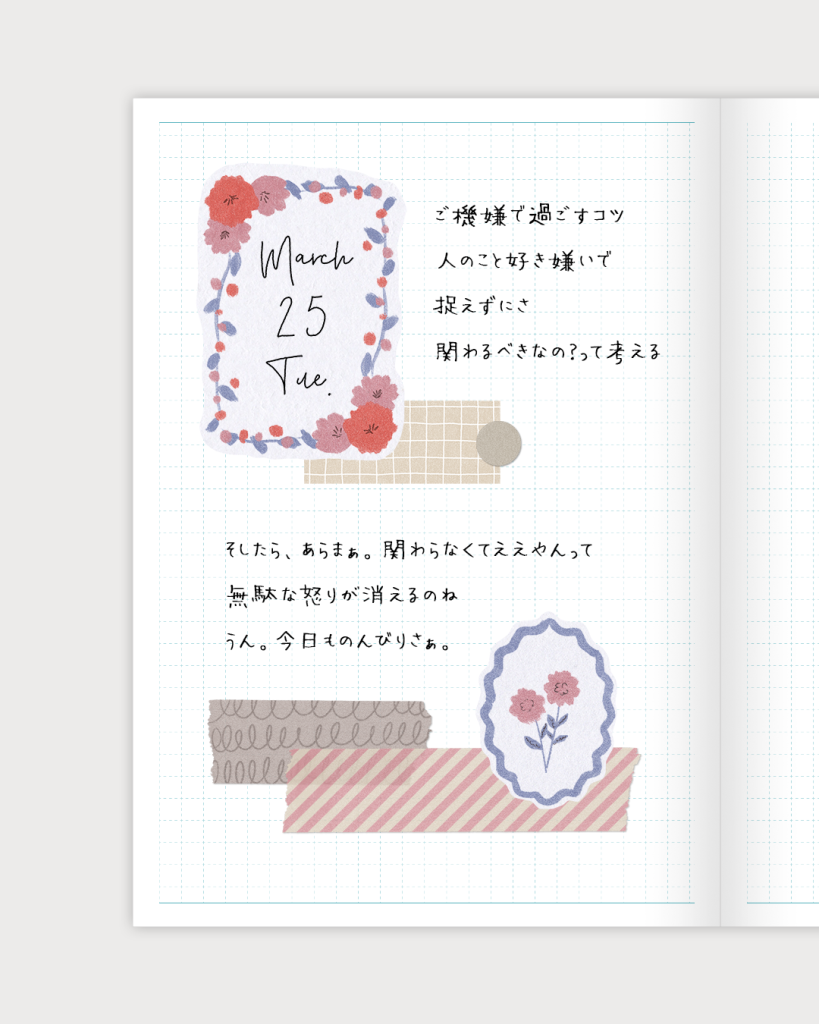 March
25
Tue.
ご機嫌で過ごすコツ
人のこと好き嫌いで
捉えずにさ
関わるべきなの?って考える
そしたら、あらまぁ。関わらなくてええやんって
無駄な怒りが消えるのね
うん。今日ものんびりさぁ。